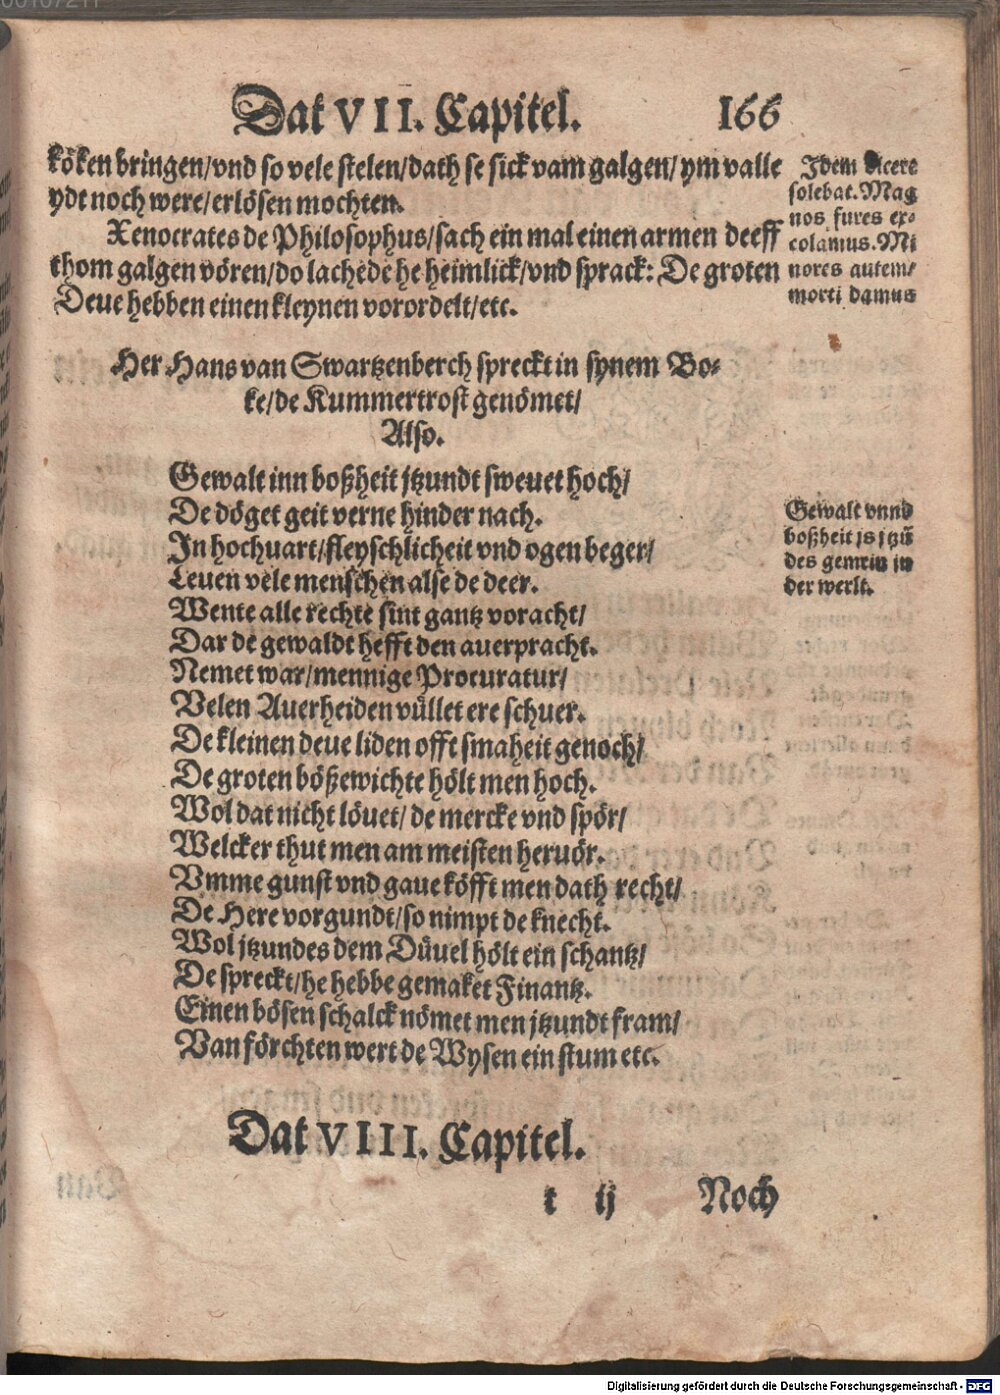 Dat VII. Capitel. 166
köken bringen/vnd so vele stelen/dath se sick vam galgen/ym valle
ydt noch were/erlösen mochten.
Xenocrates de Philosophus/sach ein mal einen armen deeff
thom galgen vören/do lachede he heimlick/vnd sprack: De groten
Deue hebben einen kleynen vorordelt/etc.
Idem dicere
solebat. Mag
nos fures ex-
colamus. Mi
nores autem/
morti damus
Her Hans van Swartzenberch spreckt in synem Bo-
ke/de Kummertrost genömet/
Also.
Gewalt inn boßheit jtzundt sweuet hoch/
De döget geit verne hinder nach.
In hochuart/fleyschlicheit vnd ogen beger/
Leuen vele menschen alse de deer.
Wente alle rechte sint gantz voracht/
Dar de gewaldt hefft den auerpracht.
Nemet war/mennige Procuratur/
Velen Auerheiden vüllet ere schuer.
De kleinen deue liden offt smaheit genoch/
De groten bößewichte hölt men hoch.
Wol dat nicht löuet/de mercke vnd spör/
Welcker thut men am meisten heruör.
Vmme gunst vnd gaue köfft men dath recht/
De Here vorgundt/so nimpt de knecht.
Wol jtzundes dem Düuel hölt ein schantz/
De spreckt/he hebbe gemaket Finantz.
Einen bösen schalck nömet men jtzundt fram/
Van förchten wert de Wysen ein stum etc.
Gewalt vnnd
boßheit is jtzū
des gemein jn
der werlt.
Dat VIII. Capitel.
t ij Noch
Digitalisierung gefördert durch die Deutsche Forschungsgemeinschaft - DFG